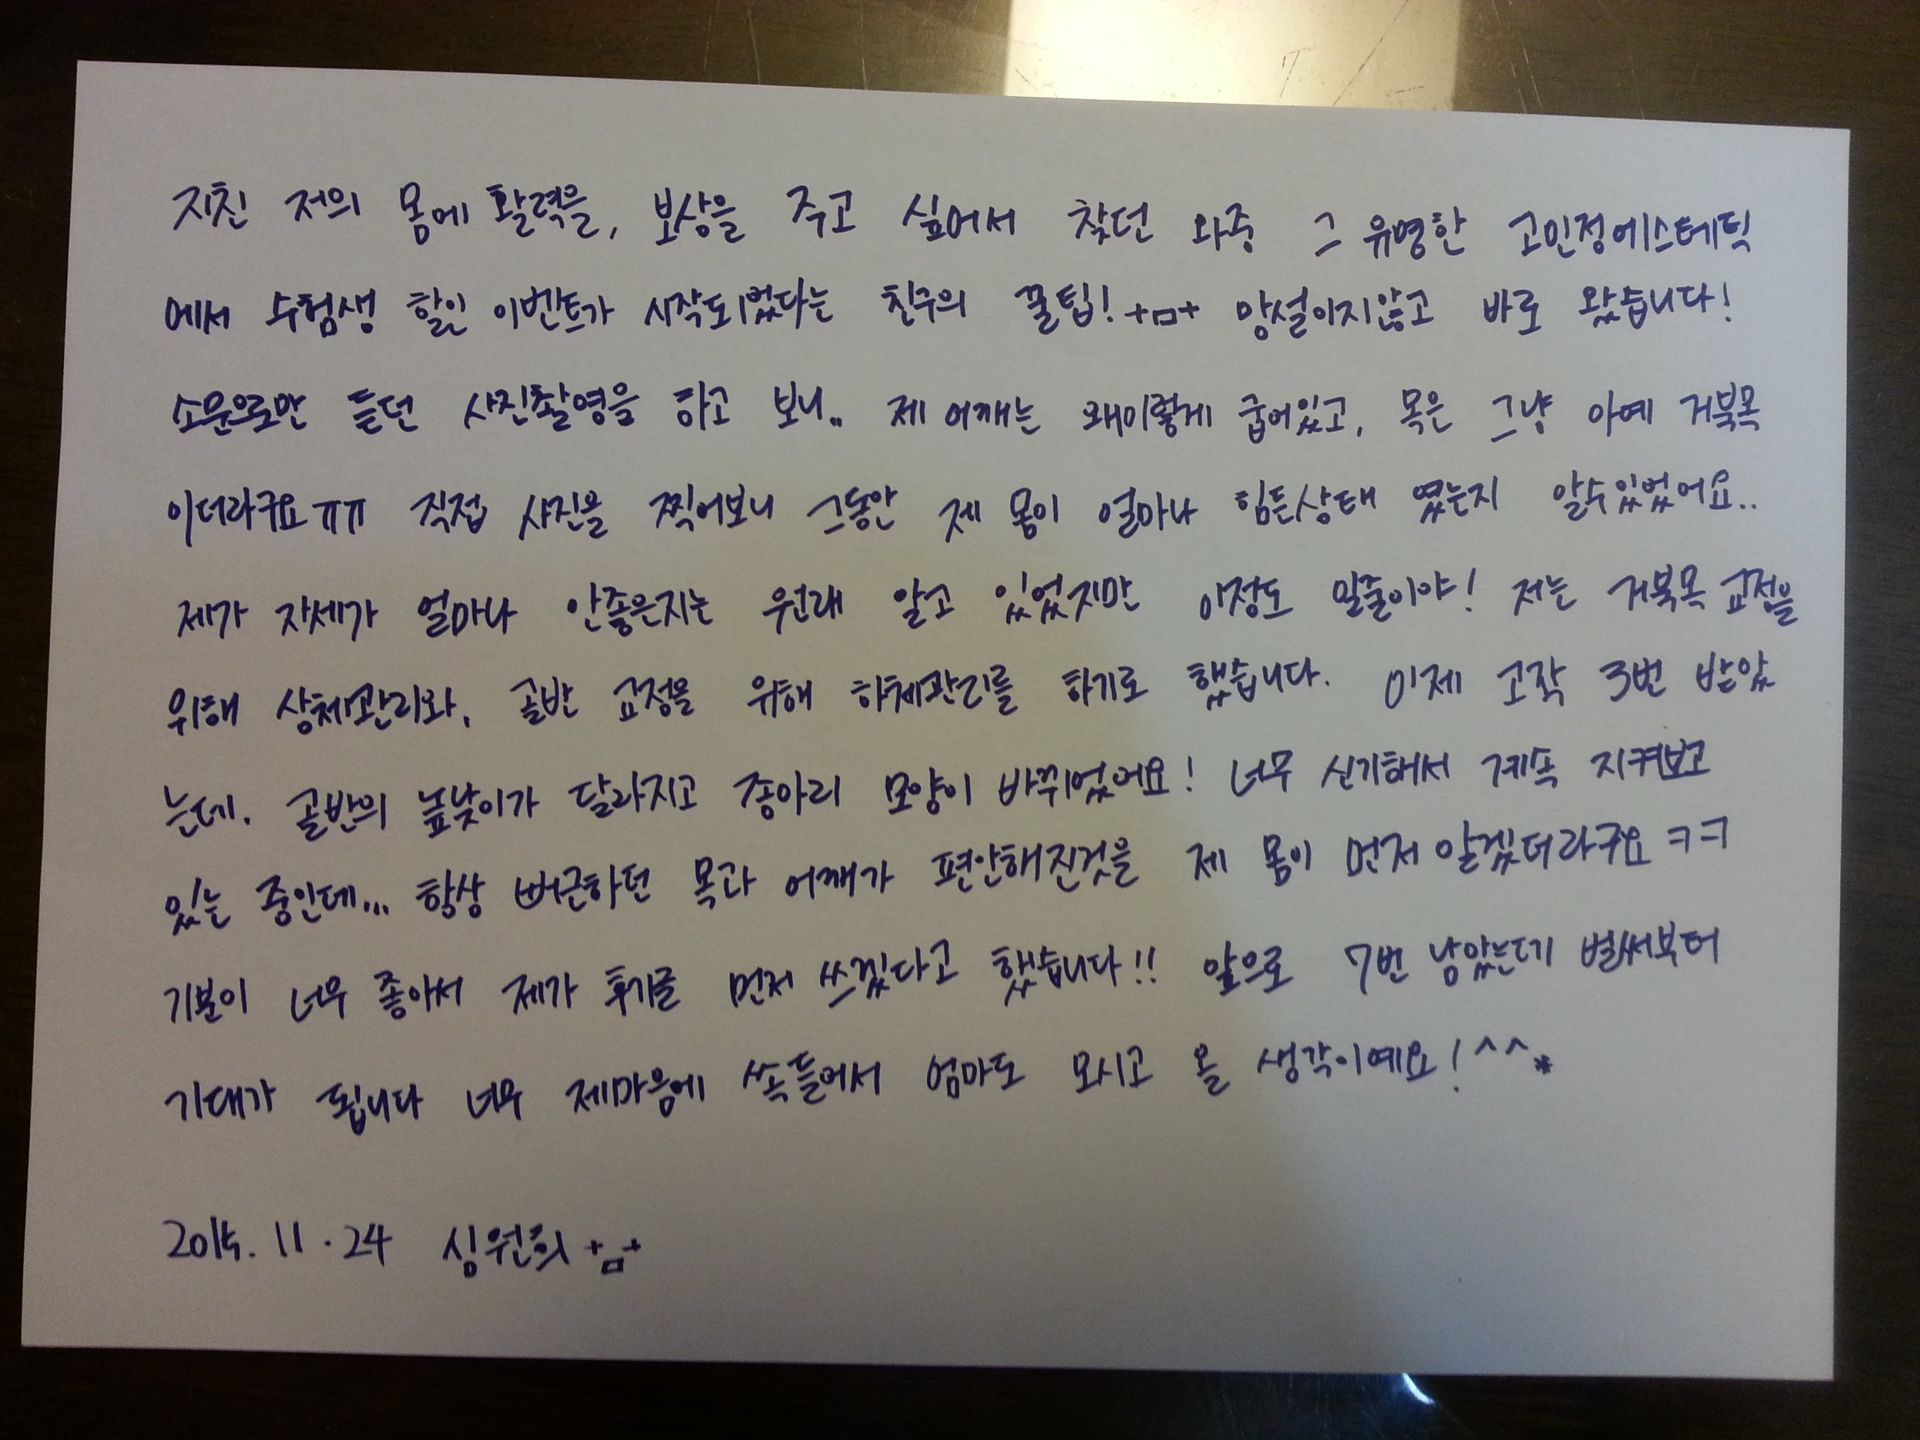 지친 저의 몸에 활력을, 보상을 주고 싶어서 찾던 와중 그 유명한 고민정에스테틱
에서 수험생 할인 이벤트가 시작되었다는 친구의 꿀팁! +ㅁ+ 망설이지않고 바로 왔습니다!
소문으로만 듣던 사진촬영을 하고 보니.. 제 어깨는 왜이렇게 굽어있고, 목은 그냥 아예 거북목
이더라구요ㅠㅠ 직접 사진을 찍어보니 그동안 제 몸이 얼마나 힘든상태 였는지 알수있었어요..
제가 자세가 얼마나 안좋은지는 원래 알고 있었지만 이정도 일줄이야! 저는 거북목 교정을
위해 상체관리와, 골반 교정을 위해 하체관리를 하기로 했습니다. 이제 고작 3번 받았
는데. 골반의 높낮이가 달라지고 종아리 모양이 바뀌었어요! 너무 신기해서 계속 지켜보고
있는 중인데... 항상 뻐근하던 목과 어깨가 편안해진것을 제 몸이 먼저 알겠더라구요 ㅋㅋ
기분이 너무 좋아서 제가 후기를 먼저 쓰겠다고 했습니다!! 앞으로 7번 남았는데 벌써부터
기대가 됩니다 너무 제마음에 쏙 들어서 엄마도 모시고 올 생각이예요! ^^*
2015. 11. 24 싱원희 +ㅁ+